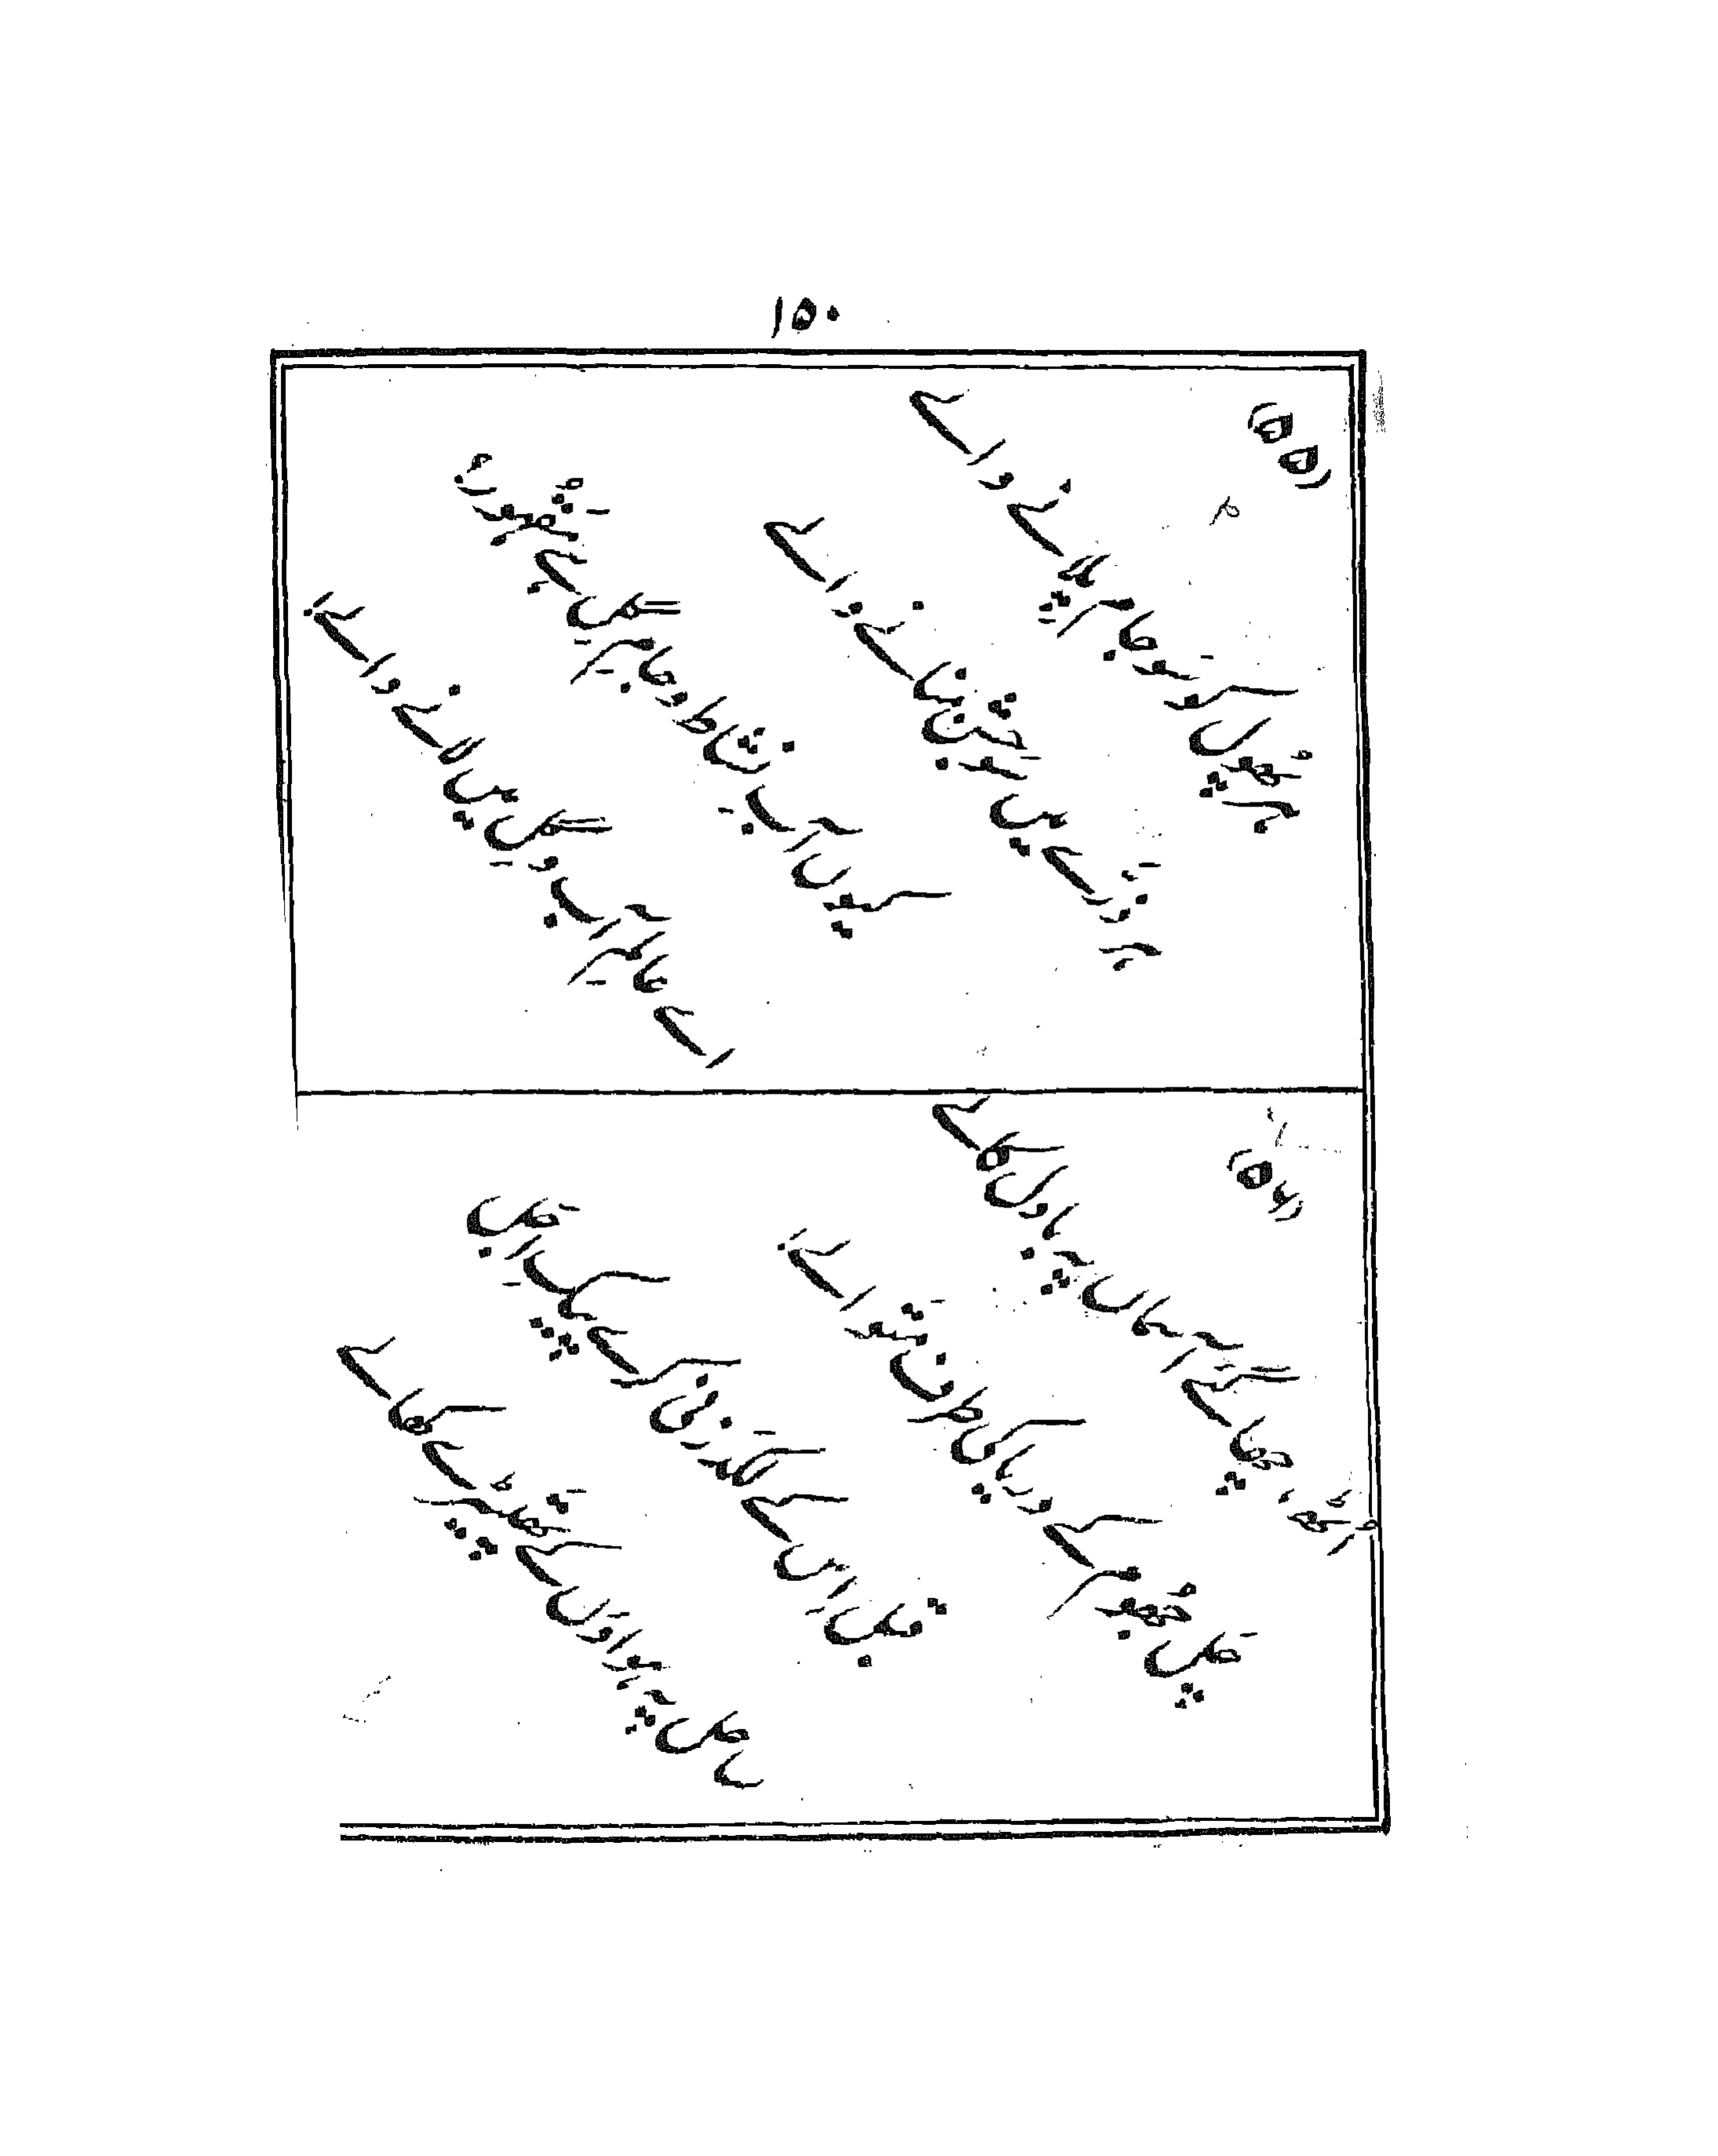 ۱۵۰
(۵۵)
ہر پھول کو سو جام پلانے والے
ہر ذرّے میں سو جشن منانے والے
کیوں آبِ نشاط و جامِ گِل ہے مقصور؟
اے عالمِ آب و گِل میں لانے والے!
(۵۶)
اُٹھ، چھا گئے آسماں پہ بادل کالے
چل جھوم کے دریا کی طرف متوالے!
قبل اِس کے کہ گدز نی کرے پیکِ اجل
ساحل پہ ہواؤں کے تھپیڑے کھالے